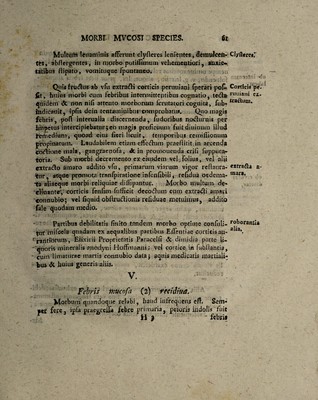 MORBI MVCOSI SPECIES. 61
Multum levaminis afferunt clysteres lenientes, demulcen-
tes, abstergentes, in morbo potissimum vehementiori, anxie-
tatibus stipato, vomituque spontaneo.
Clysteres.
Quis fructus ab usu extracti corticis peruniani sperari pos-
sit, huius morbi cum febribus intermittentibus cognatio, tecto
quidem & non nisi attento morborum scrutatori cognita, sub-
indicauit, ipsa dein tentaminibus comprobatus. Quo magis
febris, post interualla discernenda, sudoribus nocturnis per
imperus intercipiebatur; eo magis proficuum fuit diuinum illud
remedium, quoad eius fieri licuit, temporibus remissionum
propinatum. Laudabilem etiam effectum praestitit in arcenda
Corticis pe-
ruuiani ex-
tractum.
crethrae mala, gangraenosa, & in promouenda crisi suppura-
toria. Sub morbi decremento ex eiusdem vel solius, vel alii
extracto amaro addito usu, primarum viarum vigor reficitur,
atque promota transpiratione insensibili, residua oedema-
tis aliaeque morbi reliquiae dissipantur. Morbo multum de-
effuante, corticis seusim suffecit decoctum cum extracti amari
connubio; vel siquid obstructionis residuae metuimus, addito
sale quodam medio.
extracta a-
mara.
Partibus debilitatis sinito tandem morbo optime consuli-
tur mixtura quadam ex aequalibus partibus Essentiae corticis au-
rantiorum, Elixirii Proprietatis Paracelsi & dimidia parte li-
quoris mineralis anodyni Hoffmanni: vel cortice in substantia,
cum limaturae martis connubio data; aquis medicatis martiali-
bus & huius generis aliis.
roborantia
alia.
V.
Febris mucosa (2) recidiua.
Morbum quandoque relabi, haud infrequens est. Sem-
per fere, ipsa praegressa febre primaria, peioris indolis fuit
H 3 febris